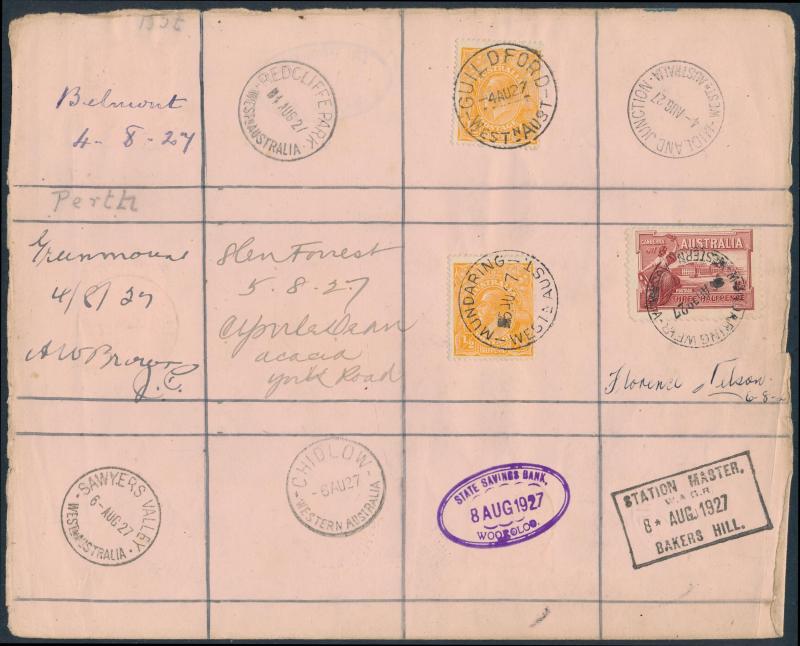 Belmont
4-8-27
REDCLIFFE PARK
AUG 27
WESTN AUSTRALIA
GUILDFORD
4AU27
WESTN AUST
MIDLAND JUNCTION
4-AUG 27
WESTN AUSTRALIA
Perth
Greenmount
4/8/27
A W Brown
J.P.
Glen Forrest
5.8.27
acacia
York Road
MUNDARING
AU
WEST AUST
1/2
CANBERRA
AUSTRALIA
POSTAGE
THREE HALFPENCE
MUNDARING WEIR
27
WESTERN
Florence
6-8-
SAWYERS VALLEY
6-AUG 27
WESTN AUSTRALIA
CHIDLOW
-6AU27
WESTERN AUSTRALIA
STATE SAVINGS BANK.
8 AUG 1927
WOOROLOO.
STATION MASTER.
W.A.G.R
8* AUG 1927
BAKERS HILL.